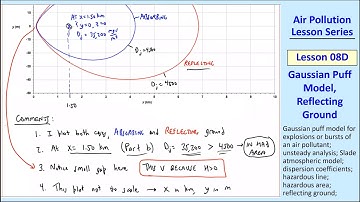 At x=1.50 km
& y=0, z=0
Dj = 35,200 mg/m³ s
ABSORBING
Dj = 4500
REFLECTING
Dj = 4500
y (m)
0
-10
-20
-30
-40
0
1
2
3
4
5
6
7
8
9
10
x (km)
1.50
Comments:
1. I plot both cases, ABSORBING and REFLECTING ground
2. At x= 1.50 km (Part b) Dj = 35,200 > 4500 → IN HAZ AREA
3. Notice small gap here THIS IS BECAUSE H>0
4. This plot not to scale → x in km, y in m
Air Pollution
Lesson Series
Lesson 08D
Gaussian Puff
Model,
Reflecting
Ground
Gaussian puff model for
explosions or bursts of
an air pollutant;
unsteady analysis; Slade
atmospheric model;
dispersion coefficients;
hazardous line;
hazardous area;
reflecting ground;